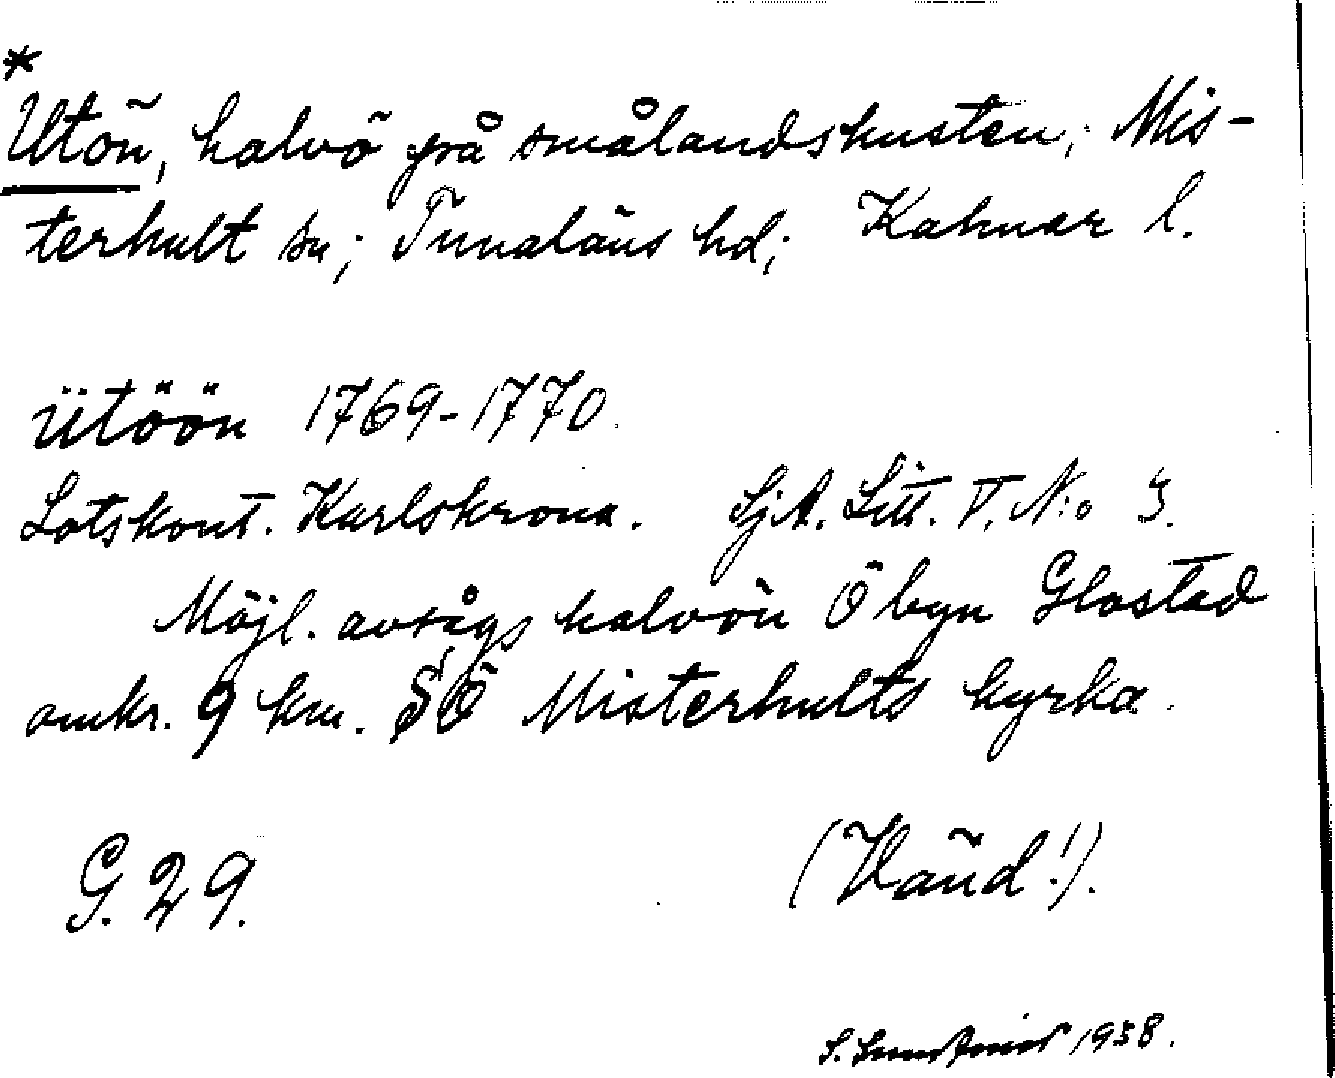 *
Utön, halvö på smålandskusten; Mis-
terhult sn; Tunaläns hd; Kalmar l.
ütöön 1769-1770.
Lotskont. Karlskrona. SjA. Litt. V. N:o 3.
Möjl. avsågs halvön Ö byn Glostad
omkr. 9 km. SÖ Misterhults kyrka.
G. 29. (Vänd!).
S. 1958.